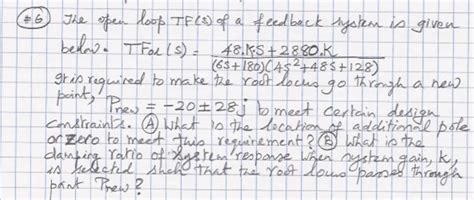 #6 The open loop TF(s) of a feedback system is given
below. TFOL(s) = 48.KS+2880.K
(6S+180)(4S²+48S+128)
It is required to make the root locus go through a new
point, Pnew = -20±28j to meet certain design
constraints. (A) What is the location of additional pole
or zero to meet this requirement? (B) What is the
damping ratio of system response when system gain, K,
is selected such that the root locus passes through
point Pnew?